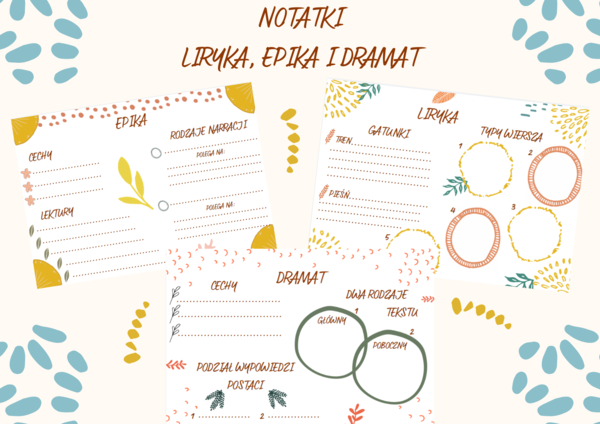 NOTATKI
LIRYKA, EPIKA I DRAMAT
EPIKA
CECHY
RODZAJE NARRACJI
POLEGA NA:
LEKTURY
POLEGA NA:
LIRYKA
GATUNKI
TYPY WIERSZA
TREN
1
2
PIEŚŃ
3
4
5
DRAMAT
CECHY
DWA RODZAJE
TEKSTU
1
GŁÓWNY
2
POBOCZNY
PODZIAŁ WYPOWIEDZI
POSTACI
1
2